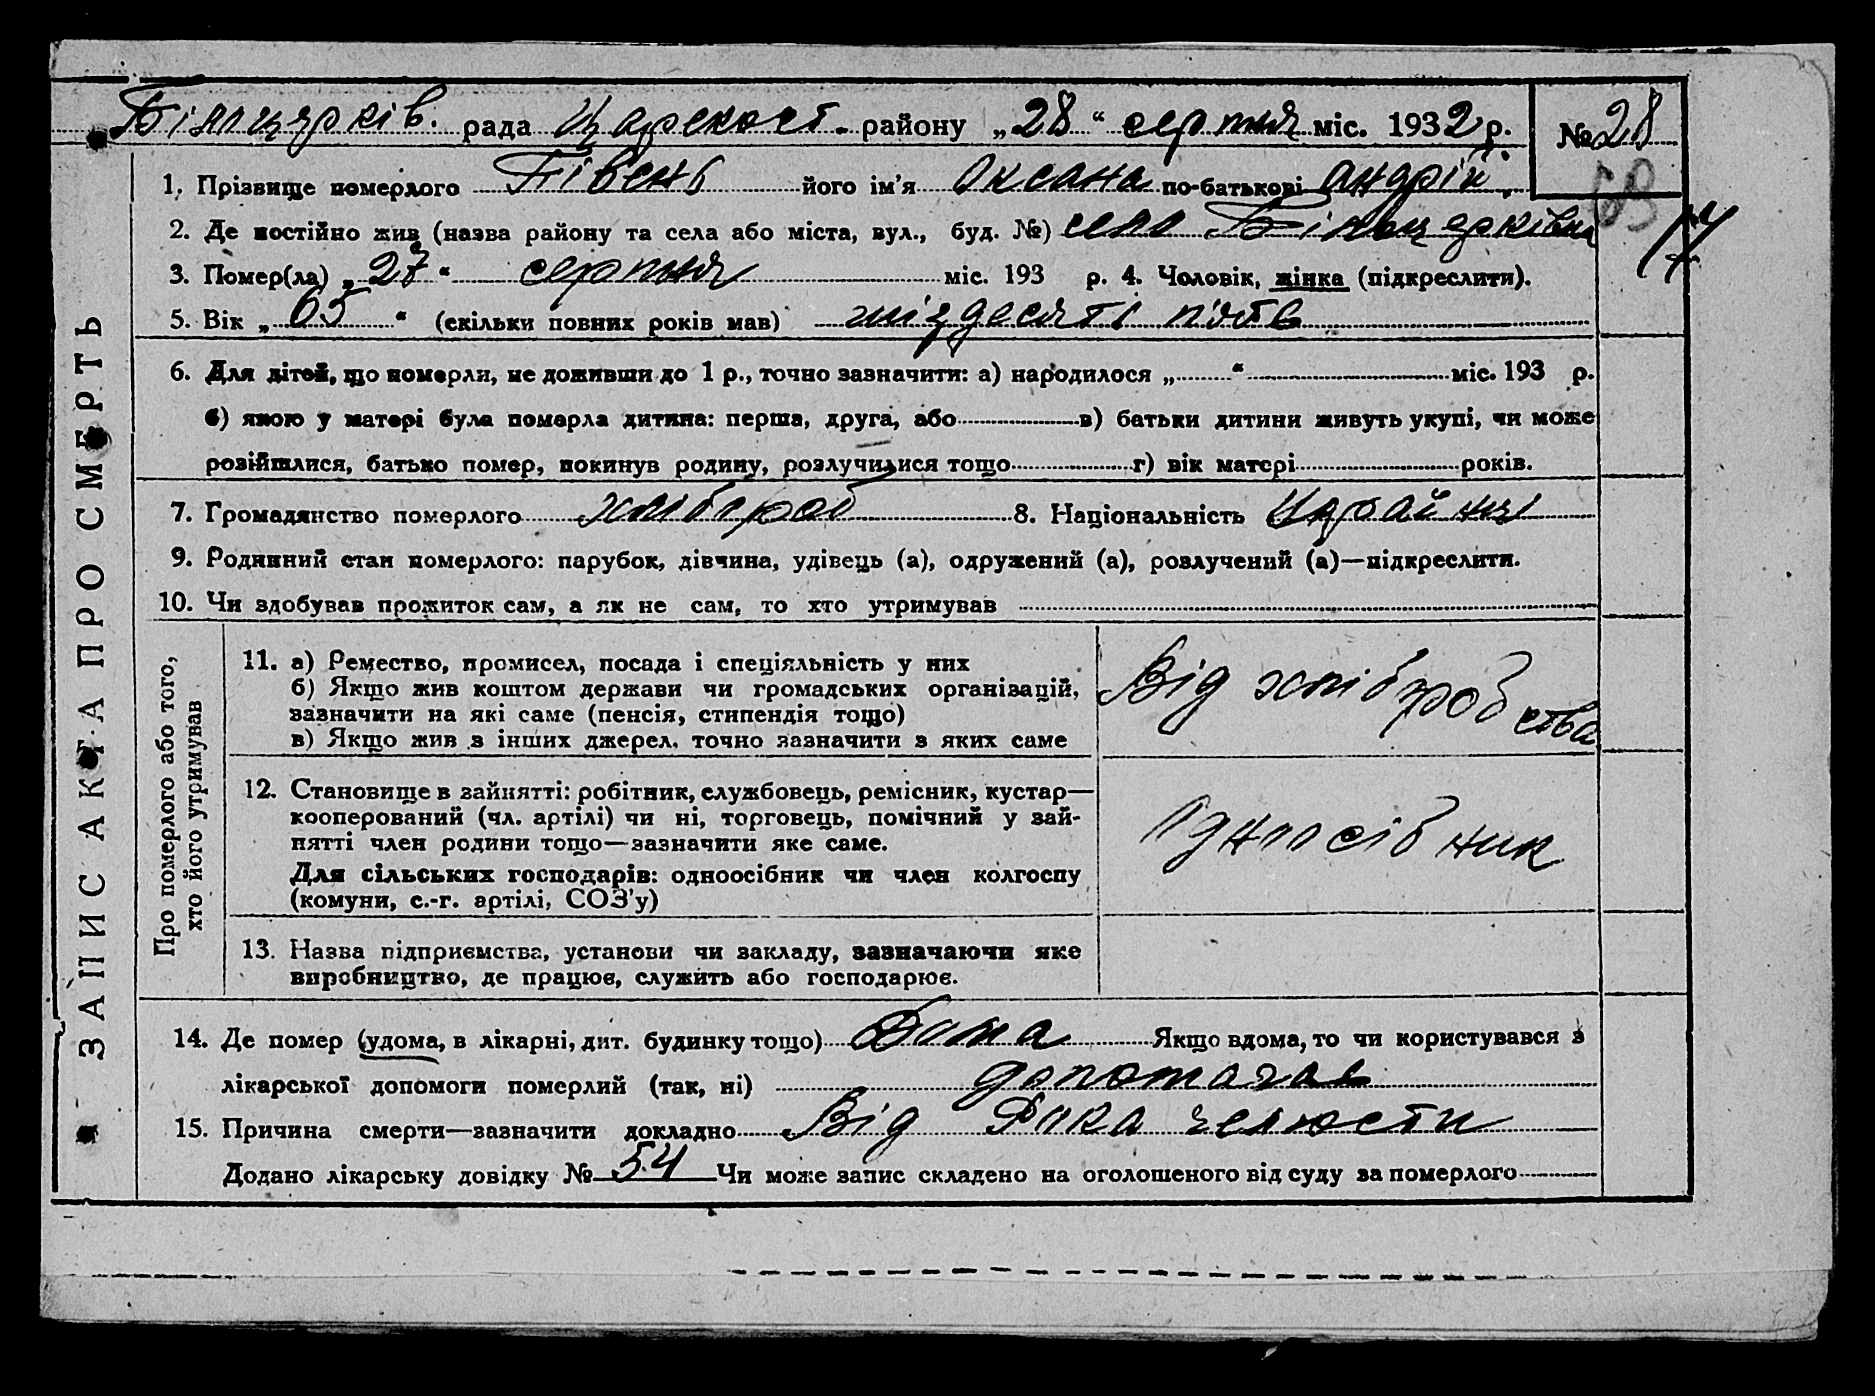 Білоцерків. рада району „28“ серпня міс. 1932 р. № 28
1. Прізвище померлого Півень його ім’я Оксана по-батькові Андрій.
17
2. Де постійно жив (назва району та села або міста, вул., буд. №) село Білоцерківка
3. Помер(ла) „27“ серпня міс. 193 р. 4. Чоловік, жінка (підкреслити).
5. Вік „65“ (скільки повних років мав) шіздесяті пять
6. Для дітей, що померли, не доживши до 1 р., точно зазначити: а) народилося „ “ міс. 193 р.
б) якою у матері була померла дитина: перша, друга, або в) батьки дитини живуть укупі, чи може
розійшлися, батько помер, покинув родину, розлучилися тощо г) вік матері років.
7. Громадянство померлого хлібороб 8. Національність
9. Родинний стан померлого: парубок, дівчина, удівець (а), одружений (а), розлучений (а)—підкреслити.
10. Чи здобував прожиток сам, а як не сам, то хто утримував
ЗАПИС АКТА ПРО СМЕРТЬ
Про померлого або того,
хто його утримував
11. а) Ремество, промисел, посада і спеціяльність у них
б) Якщо жив коштом держави чи громадських організацій,
зазначити на які саме (пенсія, стипендія тощо)
в) Якщо жив з інших джерел, точно зазначити з яких саме
Від хлібороб
ства
12. Становище в зайнятті: робітник, службовець, ремісник, кустар—
кооперований (чл. артілі) чи ні, торговець, помічний у зай-
нятті член родини тощо—зазначити яке саме.
Для сільських господарів: одноосібник чи член колгоспу
(комуни, с.-г. артілі, СОЗ’у)
Одноосібник
13. Назва підприємства, установи чи закладу, зазначаючи яке
виробництво, де працює, служить або господарює.
14. Де помер (удома, в лікарні, дит. будинку тощо) Дома Якщо вдома, то чи користувався з
лікарської допомоги померлий (так, ні) допомогав
15. Причина смерти—зазначити докладно Від Рака челюсти
Додано лікарську довідку № 54 Чи може запис складено на оголошеного від суду за померлого